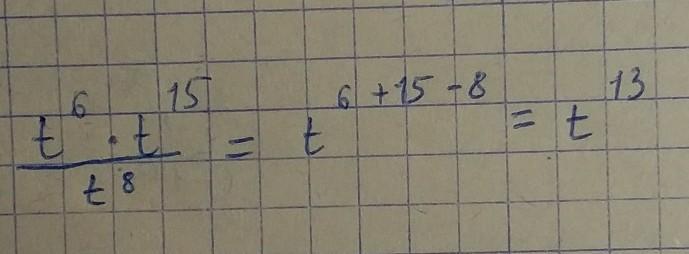 t⁶ · t¹⁵ / t⁸ = t⁶⁺¹⁵⁻⁸ = t¹³